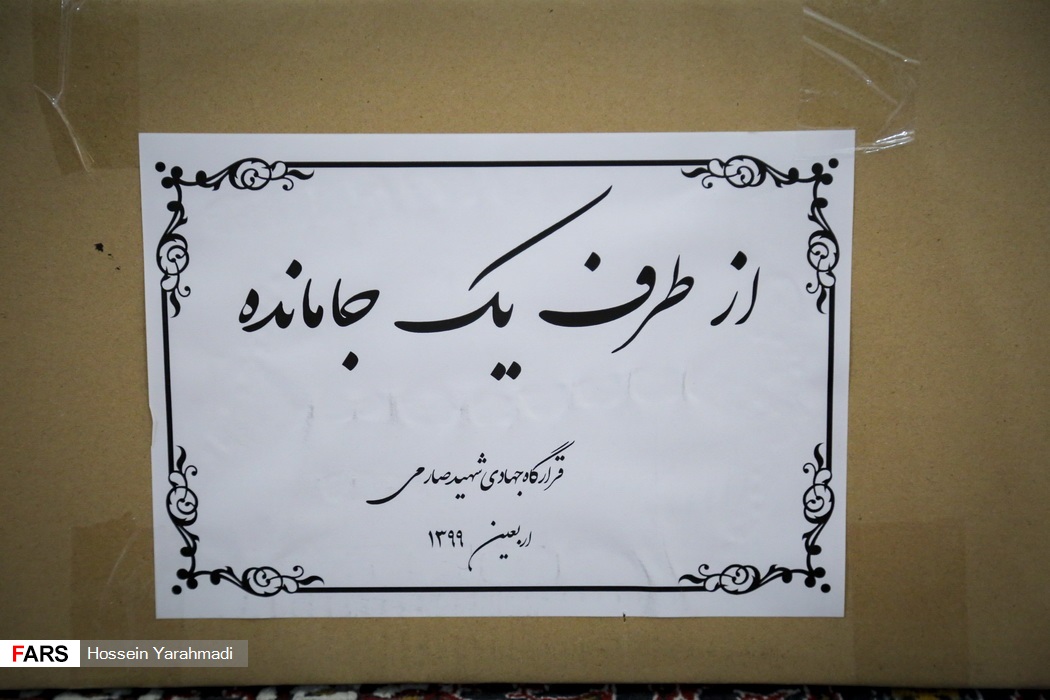 از طرف یک جامانده
قرارگاه جهادی شهید صارمی
اربعین ۱۳۹۹
FARS Hossein Yarahmadi